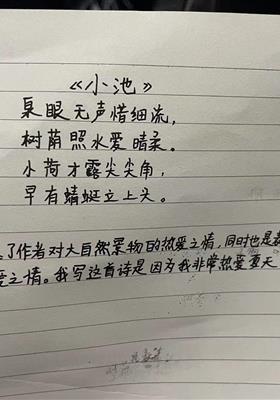 《小池》
泉眼无声惜细流,
树荫照水爱晴柔。
小荷才露尖尖角,
早有蜻蜓立上头。
了作者对大自然景物的热爱之情,同时也是
之情。我写这首诗是因为我非常热爱夏天